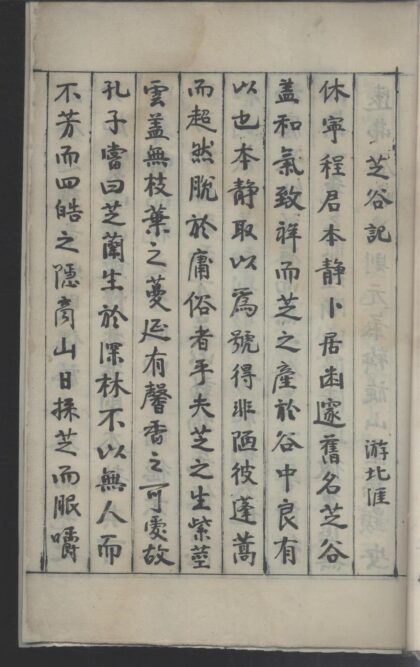 芝谷記 游北涯
休寧程君本静卜居幽邃舊名芝谷
蓋和氣致祥而芝之產於谷中良有
以也本静取以爲號得非陋彼蓬蒿
而超然脫於庸俗者乎夫芝之生紫莖
雲盖無枝葉之蔓延有馨香之可愛故
孔子嘗曰芝蘭生於深林不以無人而
不芳而四皓之隱商山日採芝而服嚼